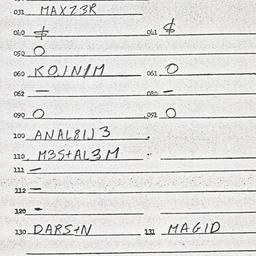 031 MAXZ3R
040 $ 041 $
050 O
060 KOJN/M 061 O
062 — 080 —
090 O 091 O
100 ANAL8IJ3
110 M3S+AL3M
111 —
112 —
120 -
130 DARS+N 131 MAGID